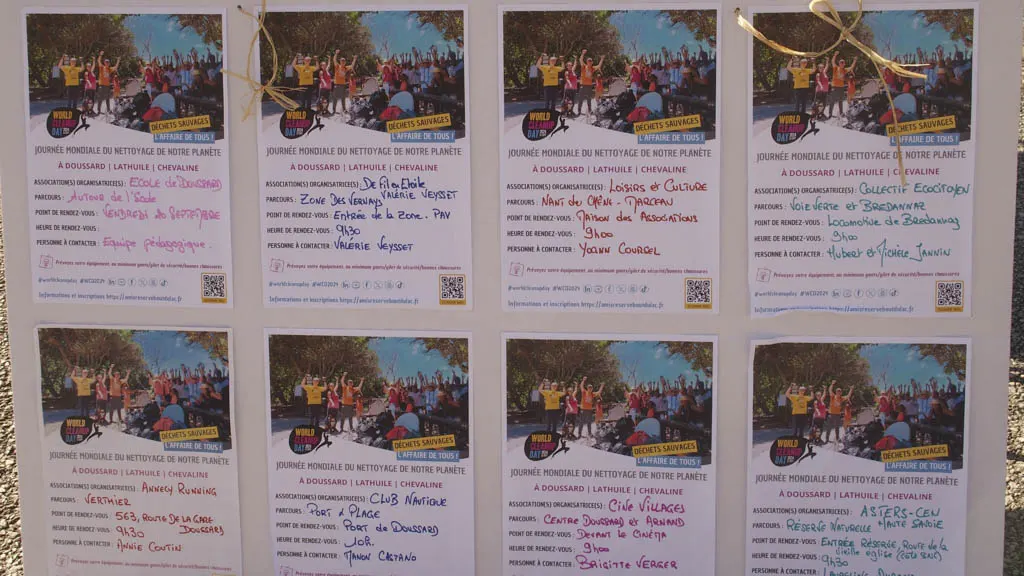 WORLD CLEANUP DAY
DÉCHETS SAUVAGES
L'AFFAIRE DE TOUS !
JOURNÉE MONDIALE DU NETTOYAGE DE NOTRE PLANÈTE
À DOUSSARD | LATHUILE | CHEVALINE
ASSOCIATION(S) ORGANISATRICE(S) : ECOLE de DOUSSARD
PARCOURS : Autour de l'Ecole
POINT DE RENDEZ-VOUS : VENDREDI 20 SEPTEMBRE
HEURE DE RENDEZ-VOUS :
PERSONNE À CONTACTER : Equipe pédagogique.
Prévoyez votre équipement, au minimum gants/gilet de sécurité/bonnes chaussures
#worldcleanupday #WCD2024
Informations et inscriptions https://amisreserveboutdulac.fr
WORLD CLEANUP DAY
DÉCHETS SAUVAGES
L'AFFAIRE DE TOUS !
JOURNÉE MONDIALE DU NETTOYAGE DE NOTRE PLANÈTE
À DOUSSARD | LATHUILE | CHEVALINE
ASSOCIATION(S) ORGANISATRICE(S) : De Fil en Etoile
VALÉRIE VEYSSET
PARCOURS : ZONE DES VERNAYS
POINT DE RENDEZ-VOUS : Entrée de la zone. PAV
HEURE DE RENDEZ-VOUS : 9h30
PERSONNE À CONTACTER : VALERIE VEYSSET
Prévoyez votre équipement, au minimum gants/gilet de sécurité/bonnes chaussures
#worldcleanupday #WCD2024
Informations et inscriptions https://amisreserveboutdulac.fr
WORLD CLEANUP DAY
DÉCHETS SAUVAGES
L'AFFAIRE DE TOUS !
JOURNÉE MONDIALE DU NETTOYAGE DE NOTRE PLANÈTE
À DOUSSARD | LATHUILE | CHEVALINE
ASSOCIATION(S) ORGANISATRICE(S) : LOISIRS et CULTURE
PARCOURS : NANT DU CHÊNE - MARCEAU
POINT DE RENDEZ-VOUS : MAISON DES ASSOCIATIONS
HEURE DE RENDEZ-VOUS : 9h00
PERSONNE À CONTACTER : YOANN COURCEL
Prévoyez votre équipement, au minimum gants/gilet de sécurité/bonnes chaussures
#worldcleanupday #WCD2024
Informations et inscriptions https://amisreserveboutdulac.fr
WORLD CLEANUP DAY
DÉCHETS SAUVAGES
L'AFFAIRE DE TOUS !
JOURNÉE MONDIALE DU NETTOYAGE DE NOTRE PLANÈTE
À DOUSSARD | LATHUILE | CHEVALINE
ASSOCIATION(S) ORGANISATRICE(S) : COLLECTIF ECOCITOYEN
PARCOURS : VOIE VERTE et BREDANNAZ
POINT DE RENDEZ-VOUS : Locomotive de Bredannaz
HEURE DE RENDEZ-VOUS : 9h00
PERSONNE À CONTACTER : Hubert et Michèle JANNIN
Prévoyez votre équipement, au minimum gants/gilet de sécurité/bonnes chaussures
#worldcleanupday #WCD2024
Informations et inscriptions https://amisreserveboutdulac.fr
WORLD CLEANUP DAY
DÉCHETS SAUVAGES
L'AFFAIRE DE TOUS !
JOURNÉE MONDIALE DU NETTOYAGE DE NOTRE PLANÈTE
À DOUSSARD | LATHUILE | CHEVALINE
ASSOCIATION(S) ORGANISATRICE(S) : ANNECY RUNNING
PARCOURS : VERTHIER
POINT DE RENDEZ-VOUS : 563, ROUTE DE LA GARE
DOUSSARD
HEURE DE RENDEZ-VOUS : 9h30
PERSONNE À CONTACTER : ANNIE COUTIN
Prévoyez votre équipement, au minimum gants/gilet de sécurité/bonnes chaussures
WORLD CLEANUP DAY
DÉCHETS SAUVAGES
L'AFFAIRE DE TOUS !
JOURNÉE MONDIALE DU NETTOYAGE DE NOTRE PLANÈTE
À DOUSSARD | LATHUILE | CHEVALINE
ASSOCIATION(S) ORGANISATRICE(S) : CLUB NAUTIQUE
PARCOURS : PORT & PLAGE
POINT DE RENDEZ-VOUS : PORT DE DOUSSARD
HEURE DE RENDEZ-VOUS : 10h.
PERSONNE À CONTACTER : MANON CASTANO
WORLD CLEANUP DAY
DÉCHETS SAUVAGES
L'AFFAIRE DE TOUS !
JOURNÉE MONDIALE DU NETTOYAGE DE NOTRE PLANÈTE
À DOUSSARD | LATHUILE | CHEVALINE
ASSOCIATION(S) ORGANISATRICE(S) : CINÉ VILLAGES
PARCOURS : CENTRE DOUSSARD et ARNAND
POINT DE RENDEZ-VOUS : DEVANT LE CINÉMA
HEURE DE RENDEZ-VOUS : 9h00
PERSONNE À CONTACTER : BRIGITTE VERGER
WORLD CLEANUP DAY
DÉCHETS SAUVAGES
L'AFFAIRE DE TOUS !
JOURNÉE MONDIALE DU NETTOYAGE DE NOTRE PLANÈTE
À DOUSSARD | LATHUILE | CHEVALINE
ASSOCIATION(S) ORGANISATRICE(S) : ASTERS-CEN
HAUTE SAVOIE
PARCOURS : RÉSERVE NATURELLE
POINT DE RENDEZ-VOUS : ENTRÉE RÉSERVE, ROUTE de la
vieille église
HEURE DE RENDEZ-VOUS : 9h30
PERSONNE À CONTACTER :